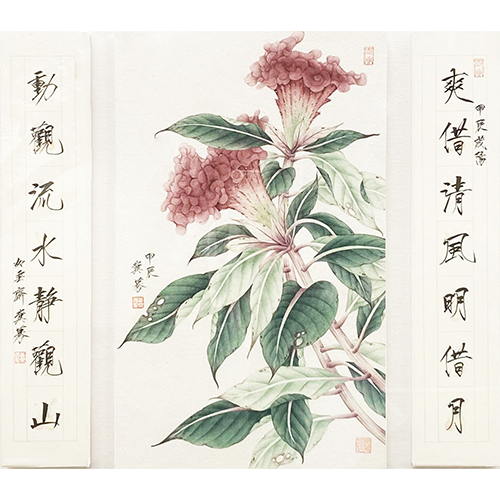 爽借清風明借月
甲辰
甲辰
動觀流水靜觀山